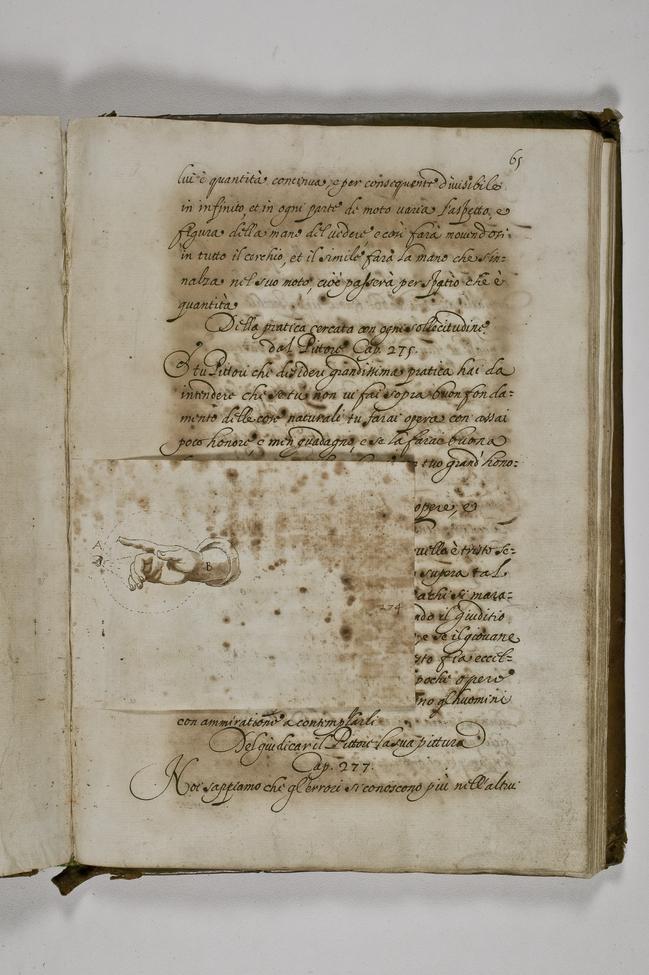 65
lui è quantità continua, e per consequente divisibile
in infinito, et in ogni parte de moto varia l'aspetto, e
figura della mano del vedere e così farà movendosi
in tutto il cerchio, et il simile farà la mano che s'in=
nalza nel suo moto, cioè passerà per spatio che è
quantità
Della pratica cercata con ogni sollecitudine
dal Pittore Cap. 275.
O tu Pittore che desideri grandissima pratica hai da
intendere che se tu non vi fai sopra buon fonda=
mento delle cose naturali tu farai opere con assai
poco honore, e men guadagno, e se la farai buona
tuo grand'hono=
opere, e
quella è tristo se=
supera tal
si mara=
il giuditio
e se il giovane
fia eccel=
poche opere
no gl'huomini
A
B
274
con ammiratione a contemplarle
Del giudicar il Pittore la sua pittura
Cap. 277.
Noi sappiamo che gl'errori si conoscono più nell'altrui